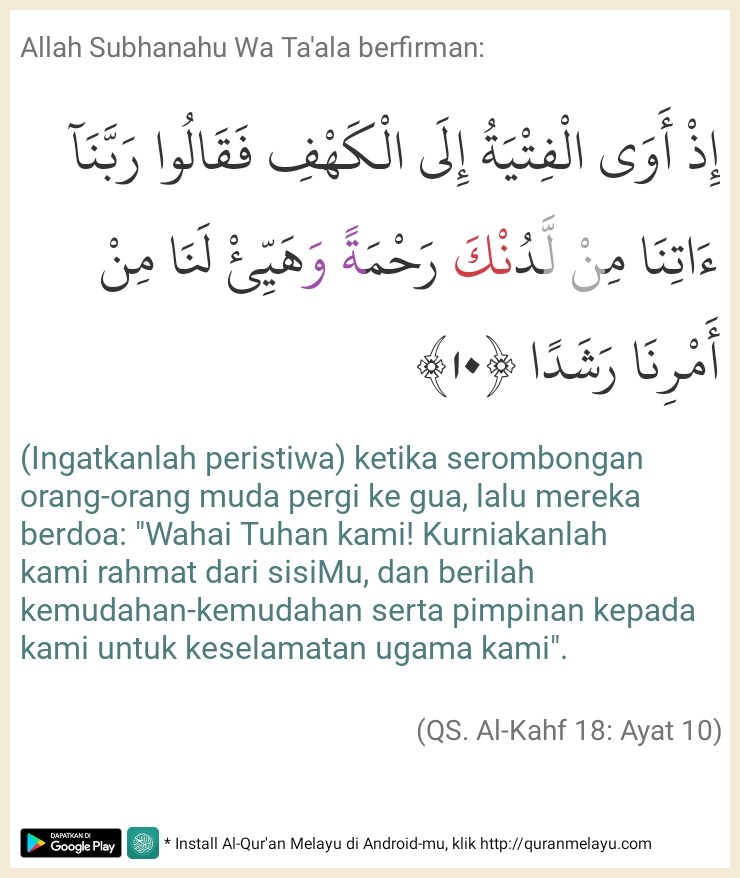 Allah Subhanahu Wa Ta'ala berfirman:
إِذْ أَوَى الْفِتْيَةُ إِلَى الْكَهْفِ فَقَالُوا رَبَّنَآ
ءَاتِنَا مِنْ لَّدُنْكَ رَحْمَةً وَهَيِّئْ لَنَا مِنْ
أَمْرِنَا رَشَدًا ﴿١٠﴾
(Ingatkanlah peristiwa) ketika serombongan
orang-orang muda pergi ke gua, lalu mereka
berdoa: "Wahai Tuhan kami! Kurniakanlah
kami rahmat dari sisiMu, dan berilah
kemudahan-kemudahan serta pimpinan kepada
kami untuk keselamatan ugama kami".
(QS. Al-Kahf 18: Ayat 10)
DAPATKAN DI
Google Play
* Install Al-Qur'an Melayu di Android-mu, klik http://quranmelayu.com